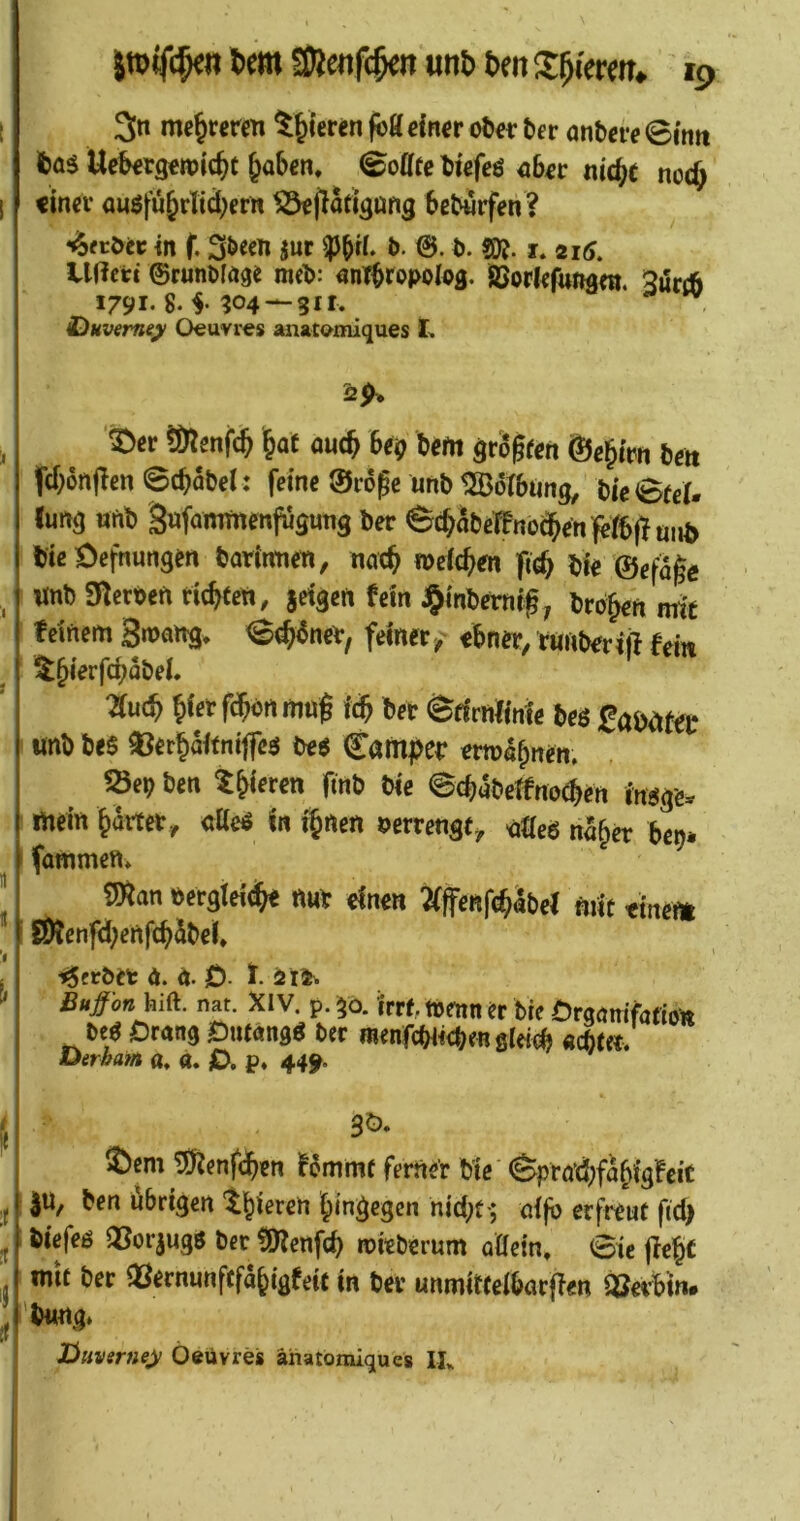 zwischen dem Menschen und den Thieren. 19
In mehreren Thieren soll einer oder der andere Sinn
das Uebergewicht haben. Sollte dieses aber nicht noch
einer ausführlichern Bestätigung bedürfen?
Herder in f. Ideen zur Phil. d. G. d. M. 1. 216.
Usteri Grundlage med: anthropolog. Vorlesungen. Zürch
1791. 8. §. 304—311.
Duverney Oeuvres anatomiques I.
29.
Der Mensch hat auch bey dem größten Gehirn den
schönsten Schädel: seine Größe und Wölbung, die Stel-
lung und Zusammenfügung der Schädelknochen selbst und
die Oefnungen darinnen, nach welchen sich die Gefäße
und Nerven richten, zeigen kein Hinderniß, drohen mit
keinem Zwang. Schöner, feiner, ebner, runder ist kein
Thierschädel.
Auch hier schon muß ich der Stirnlinie des Lavater
und des Verhältnisses des Camper erwähnen.
Bey den Thieren sind die Schädelknochen insge-
mein härter, alles in ihnen verrengt, alles näher bey-
sammen.
Man vergleiche nur einen Affenschädel mit einem
Menschenschädel.
Herder a. a. O. I. 212.
Buffon hist. nat. XIV. p. 30. irrt, wenn er die Organisation
des Orang Outangs der menschlichen gleich achtet.
Derham a. a. O. p. 449.
30.
Dem Menschen kömmt ferner die Sprachfähigkeit
zu, den übrigen Thieren hingegen nicht; also erfreut sich
dieses Vorzugs der Mensch wiederum allein. Sie steht
mit der Vernunftfähigkeit in der unmittelbarsten Verbin-
dung.
Duverney Oeuvres anatomiques II.